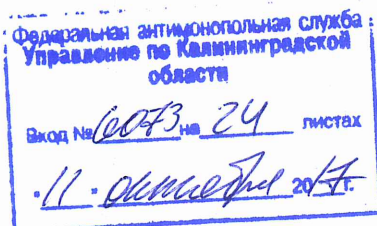 Федеральная антимонопольная служба
Управление по Калининградской
области
Вход № 6073 на 24 листах
"11" октября 2017г.